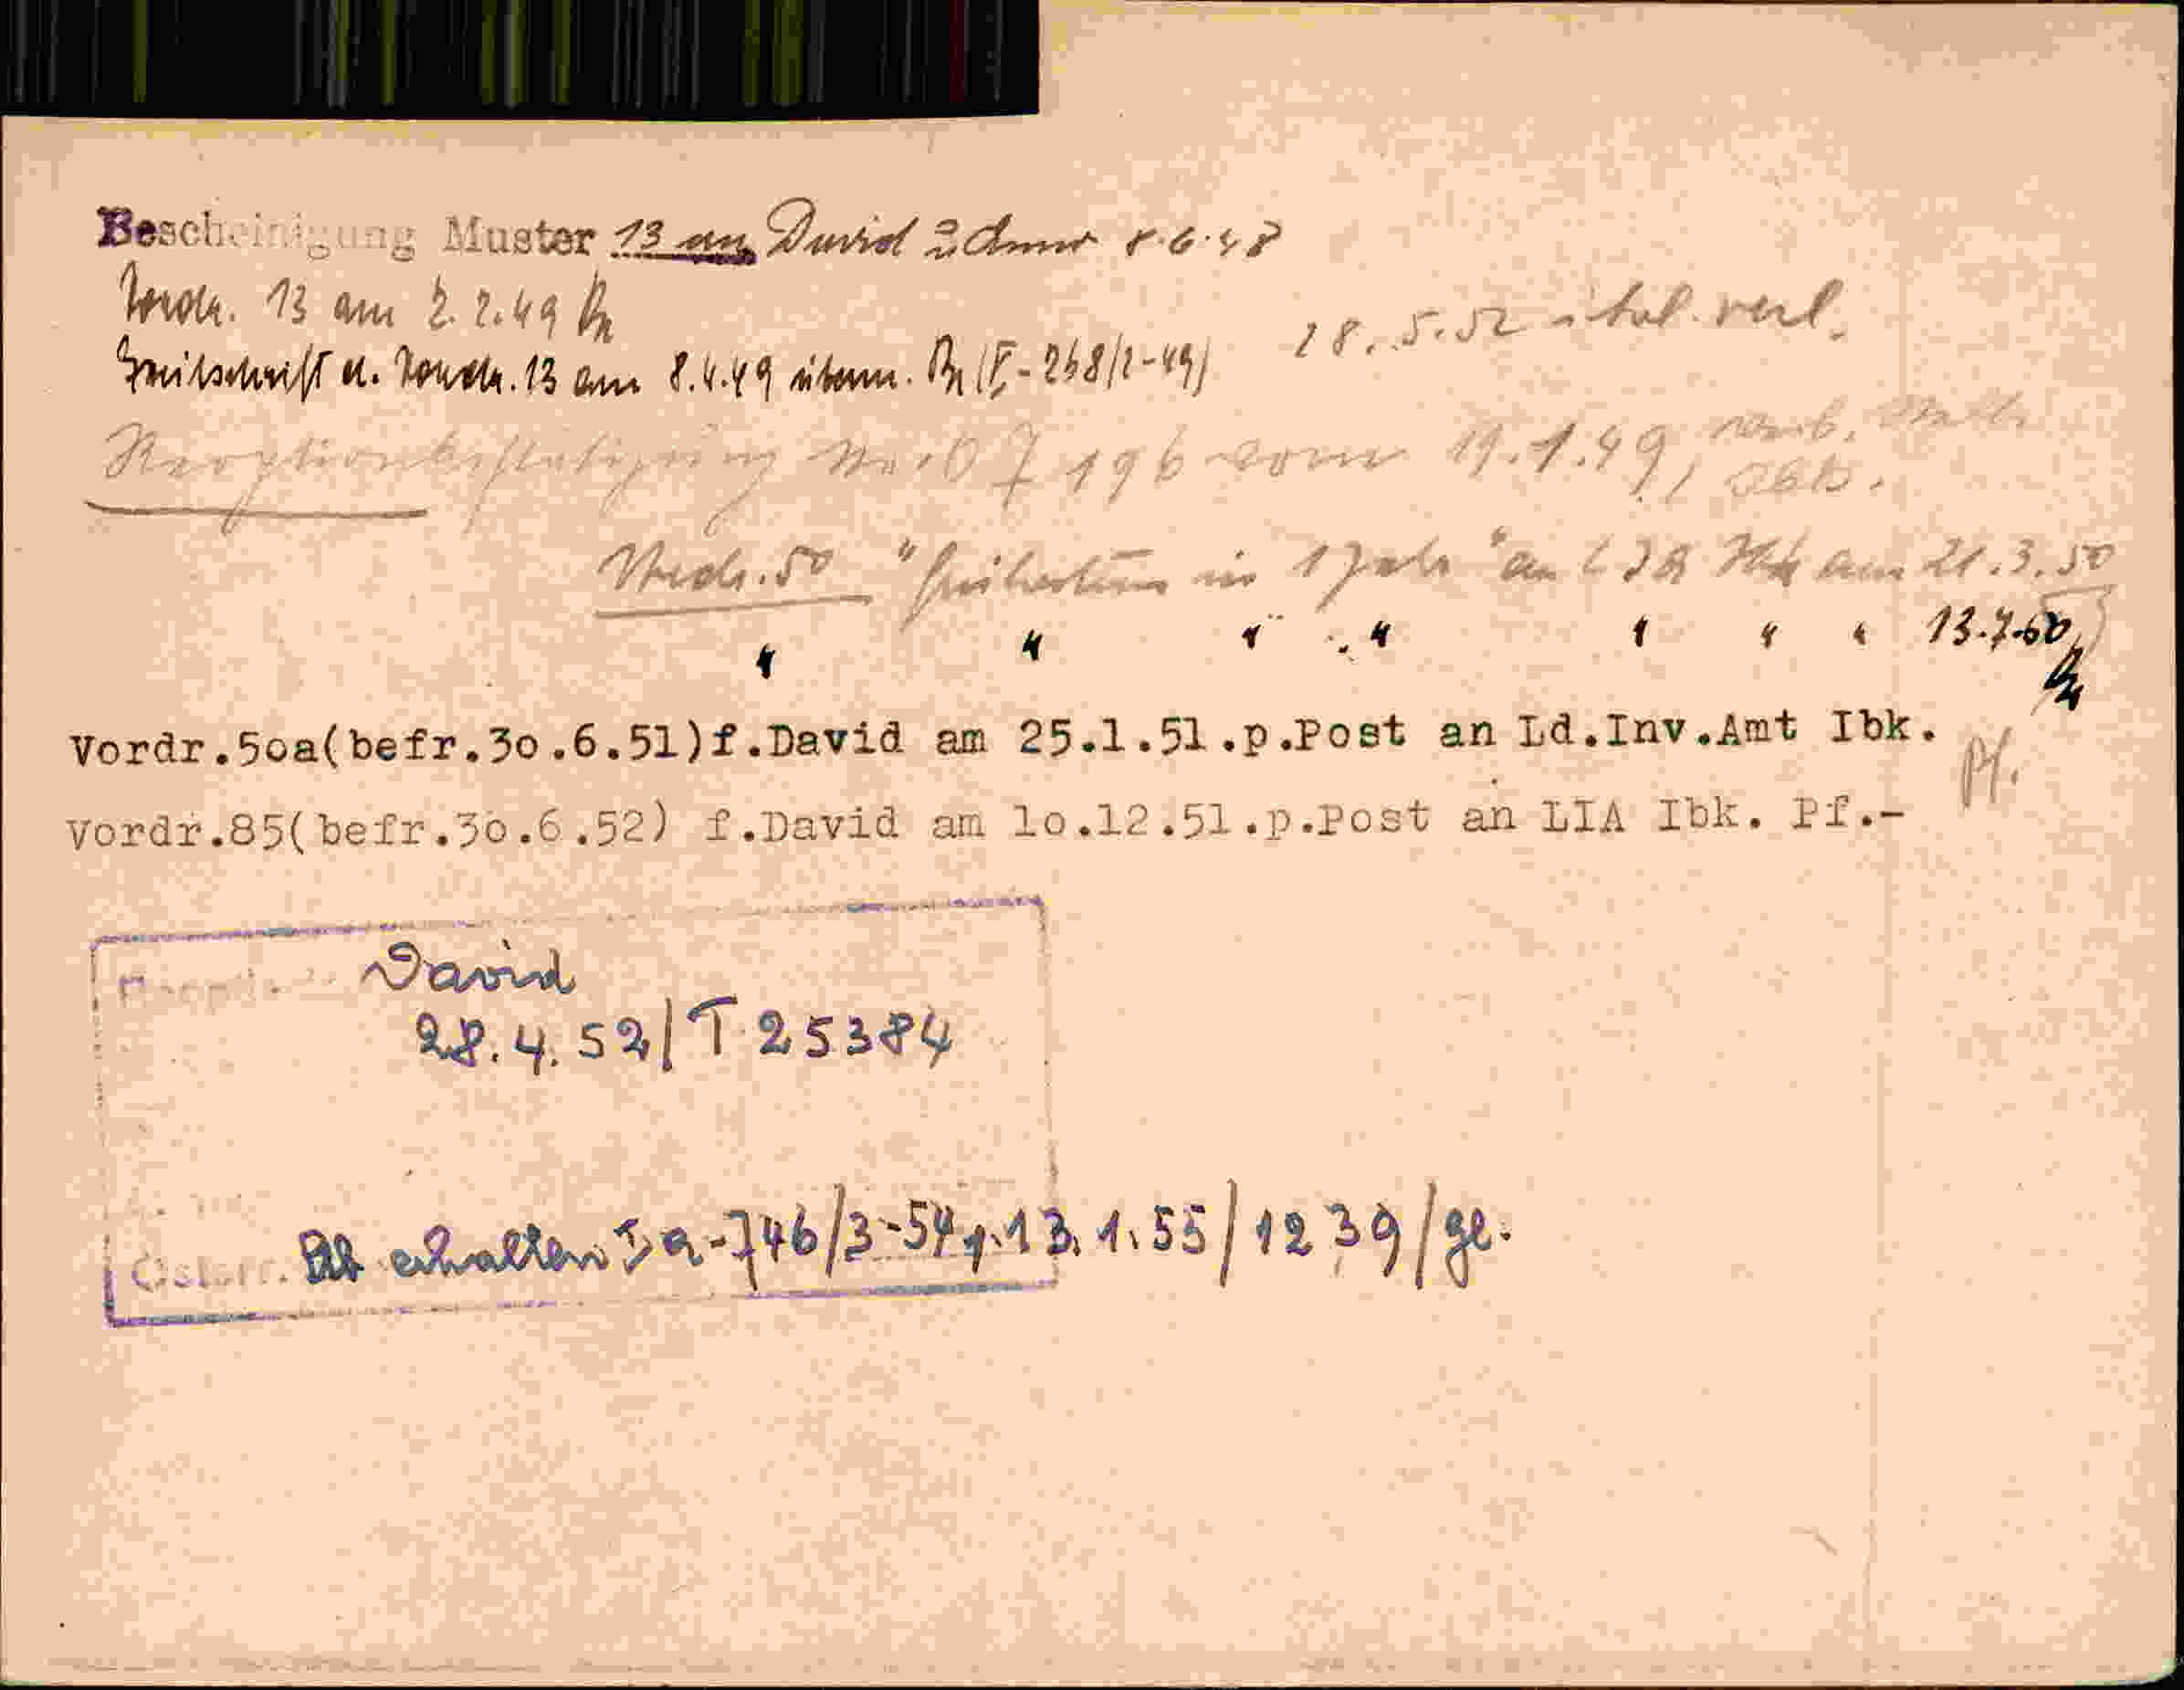 Bescheinigung Muster 13 an David 8.6.48
Vordr. 13 am 2.2.49
Zweitschrift d. Vordr. 13 am 8.4.49 übern.
28.5.52 ital. verl.
Optionsbestätigung No. 07196 vom 19.1.49,
Vordr. 50 " frühestens in 1 Jahr " an am 21.3.50
" " " " " " " 13.7.50
Vordr.50a(befr.30.6.51)f.David am 25.1.51.p.Post an Ld.Inv.Amt Ibk.
Pf.
Vordr.85(befr.30.6.52) f.David am 10.12.51.p.Post an LIA Ibk. Pf.-
David
28.4.52/T 25384
Österr.
erhalten I a-746/3-54, v.13.1.55/1239/ge.